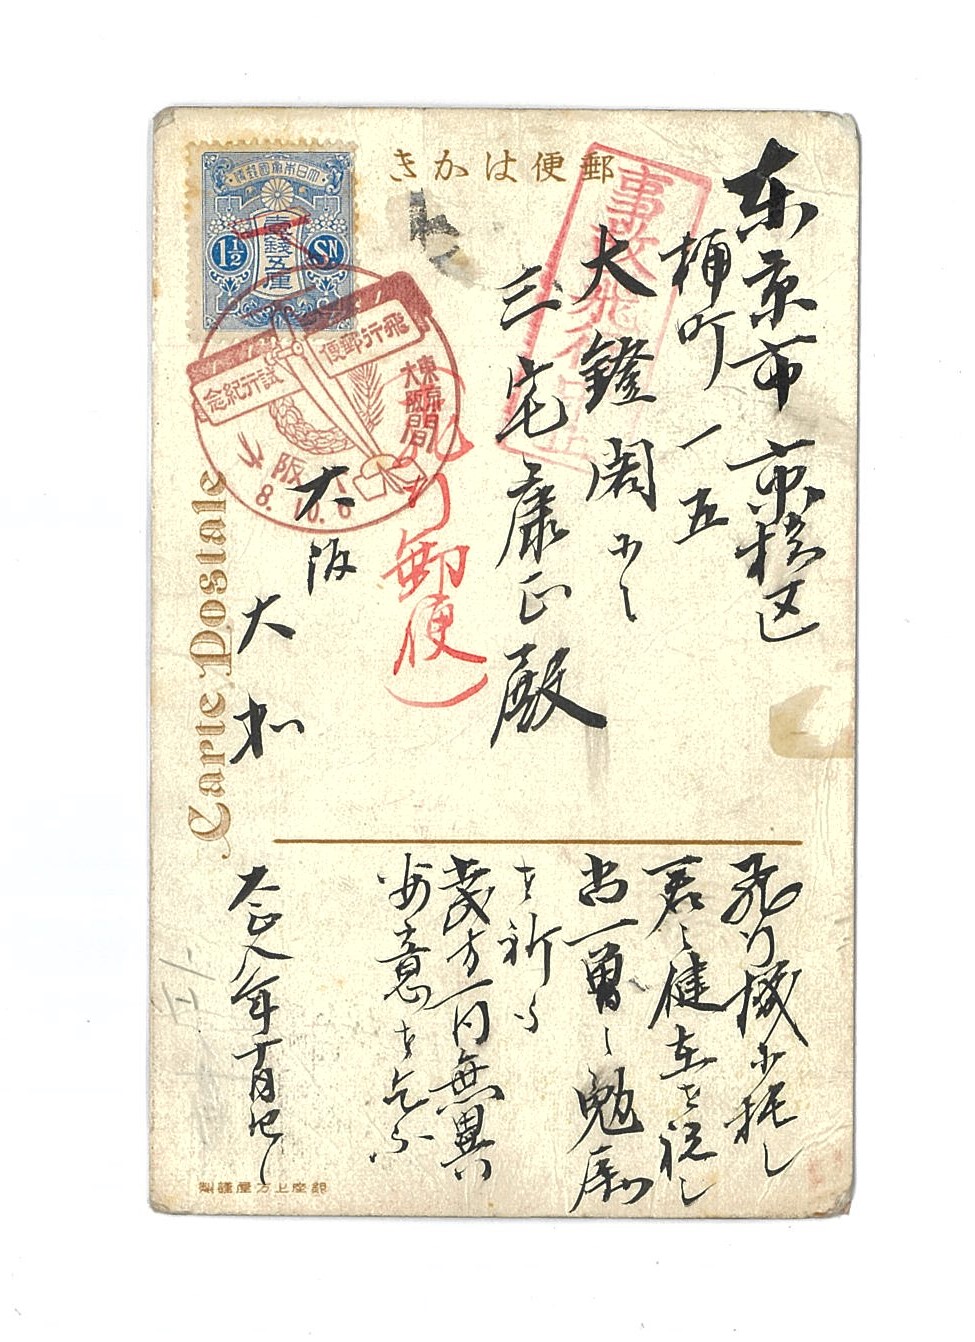 郵便はかき
大日本帝國郵便
壹錢五厘
1½ SN
飛行郵便
試行紀念
東京
大阪
間
大阪
8.10.6
事故飛行中止
東京市京橋区
桶町一五
大鐙閣にて
三宅康正殿
(飛行郵便)
大阪
大和
Carte Postale
飛行機に托し
君の健在を祝し
尚一層の勉励
を祈る
茂方一同無異
安意を乞ふ
大正八年十月
銀座上方屋謹製